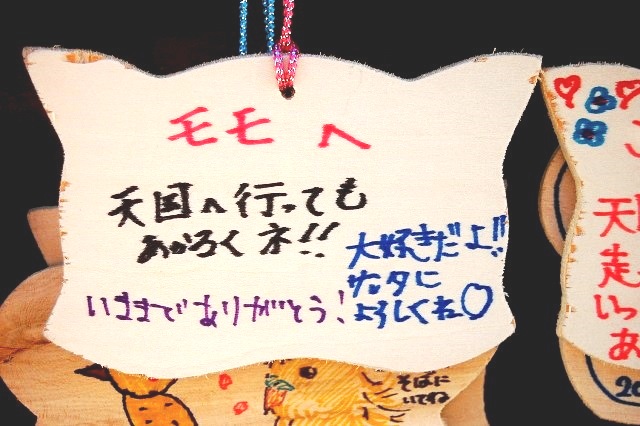 モモへ
天国へ行っても
あかるくネ!!
大好きだよ!!
サンタに
よろしくね♡
いままでありがとう!
そばに
いてね
天
走
いっ
あ
20